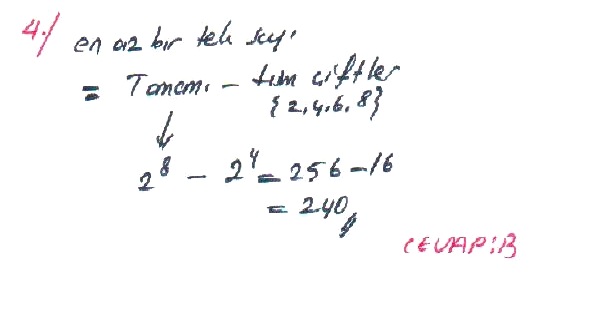 4./ en az bir tek sayı
= Tamamı - tüm çiftler
{2,4,6,8}
↓
2⁸ - 2⁴ = 256 - 16
= 240
CEVAP:B